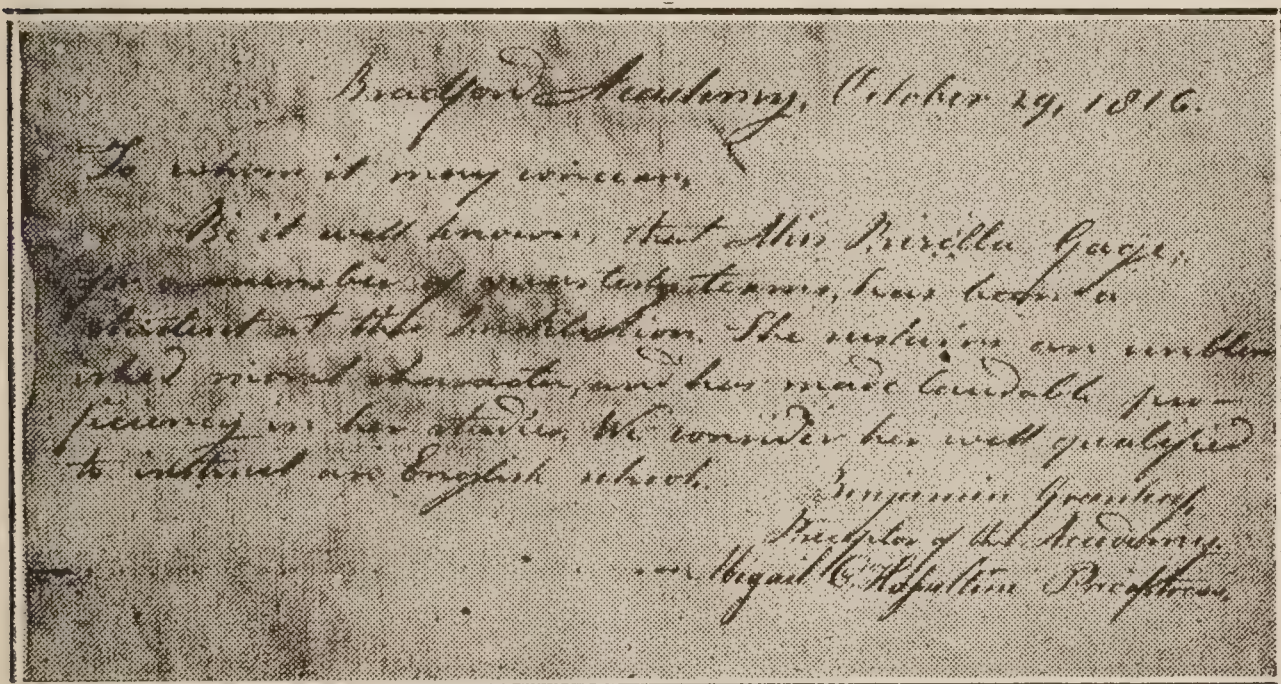 Bradford Academy, October 29, 1816.
To whom it may concern,
Be it well known, that Miss Prisilla Gage,
for a number of quarterly terms, has been a
student at this Institution. She sustains an unblem
ished moral character, and has made laudable pro-
ficiency in her studies. We consider her well qualified
to instruct an English school.
Benjamin Greenleaf,
Preceptor of the Academy.
Abigail C. Hazeltine Preceptress.